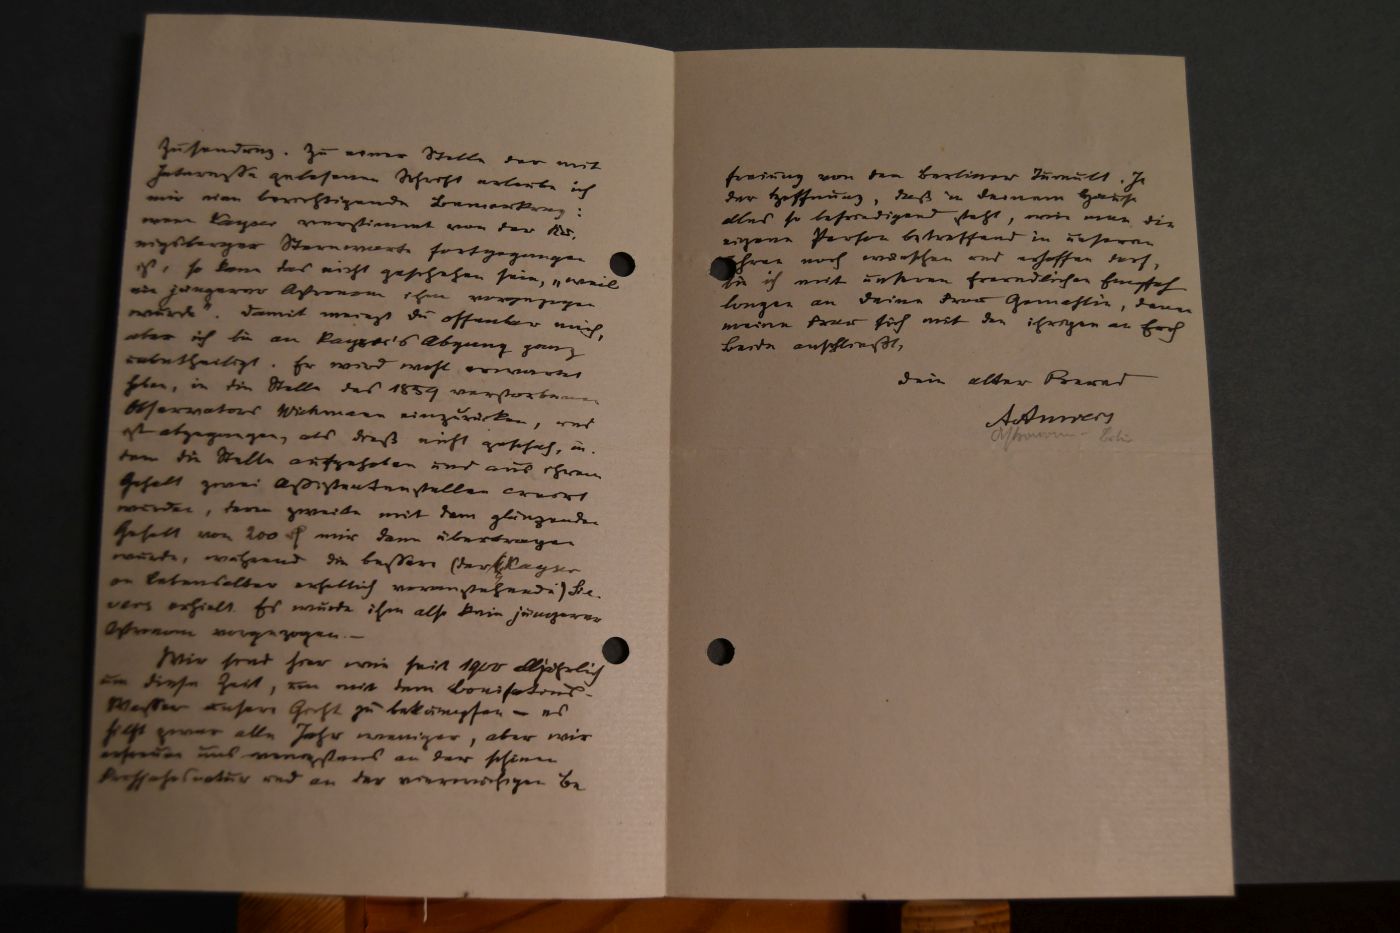 Zusendung. Zu einer Stelle der mit
Interesse gelesenen Schrift erlaube ich
mir eine berichtigende Bemerkung:
wenn Kayser verstimmt von der Kö-
nigsberger Sternwarte fortgegangen
ist, so kann das nicht geschehen sein, „weil
ein jüngerer Astronom ihm vorgezogen
wurde“. Damit meinst du offenbar mich,
aber ich bin an Kayser's Abgang ganz
unbetheiligt. Er wird wohl erwartet
haben, in die Stelle des 1859 verstorbenen
Observators Wichmann einzurücken, und
ist abgegangen, als dieß nicht geschah, in-
dem die Stelle aufgehoben und aus ihrem
Gehalt zwei Assistentenstellen creirt
wurden, deren zweite mit dem glänzenden
Gehalt von 200 mir dann übertragen
wurde, während die bessere (der Kayser
an Lebensalter erheblich voranstehende)
erhielt. Es wurde ihm also kein jüngerer
Astronom vorgezogen. —
Wir sind hier wie seit 1900 alljährlich
um diese Zeit, um mit dem Bonifatius-
Wasser unsere Gicht zu bekämpfen — es
hilft zwar alle Jahr weniger, aber wir
erfreuen uns wenigstens an der schönen
Frühjahrsnatur und an der vierwöchigen Be
freiung von dem Berliner Tumult. In
der Hoffnung, daß in deinem Hause
alles so befriedigend steht, wie man die
eigene Person betreffend in unseren
Jahren noch wünschen und erhoffen darf,
bin ich mit unseren freundlichen Empfeh
lungen an deine Frau Gemahlin, denen
meine Frau sich mit den ihrigen an Euch
Beide anschließt,
dein alter Freund
AAuwers
Astronom - Berlin